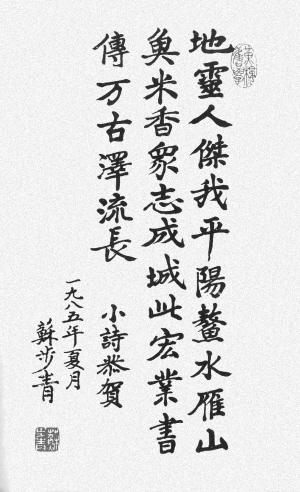 地靈人傑我平陽鰲水雁山
魚米香眾志成城此宏業書
傳万古澤流長
小詩恭賀
一九八五年夏月
蘇步青